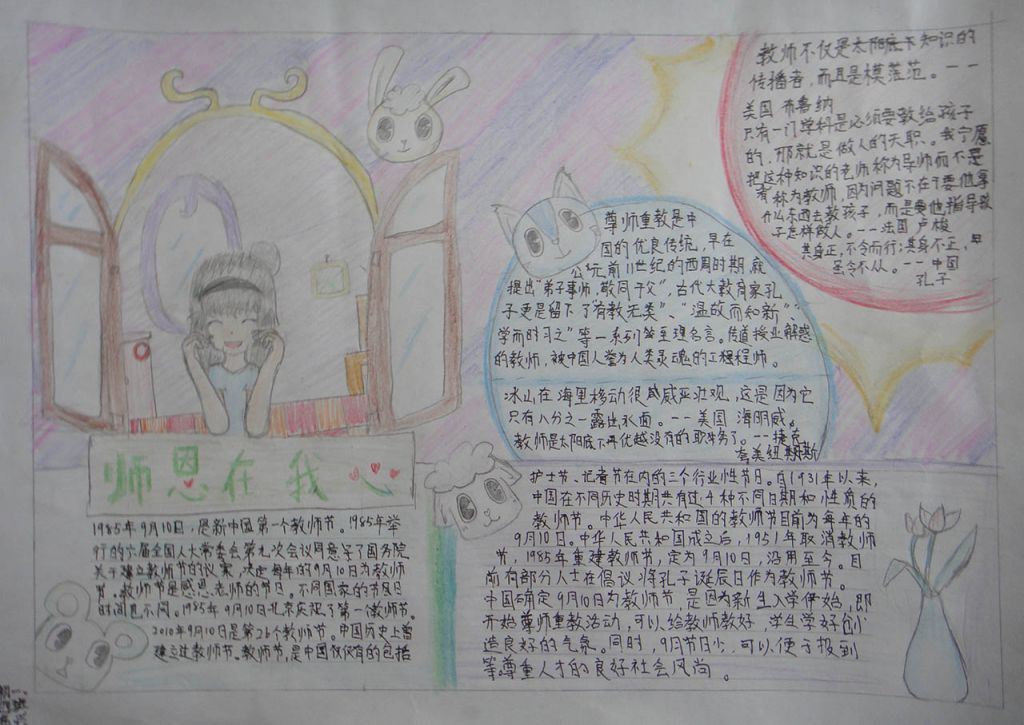 教师不仅是太阳底下知识的
传播者,而且是模范范。--
美国 布鲁纳
只有一门学科是必须要教给孩子
的,那就是做人的天职。我宁愿
把这种知识的老师称为导师而不是
称为教师,因为问题不在于要他拿
什么东西去教孩子,而是要他指导孩
子怎样做人。--法国 卢梭
其身正,不令而行;其身不正,虽
至令不从。--中国
孔子
尊师重教是中
国的优良传统,早在
公元前11世纪的西周时期,就
提出“弟子事师,敬同于父”,古代大教育家孔
子更是留下了“有教无类”、“温故而知新”、
学而时习之”等一系列至理名言。传道授业解惑
的教师,被中国人誉为人类灵魂的工程程师。
冰山在海里移动很威威严壮观,这是因为它
只有八分之一露出水面。--美国 海明威。
教师是太阳底下再优越没有的职务了。--捷克
夸美纽斯
师恩在我心
1985年9月10日,是新中国第一个教师节。1985年举
行的六届全国人大常委会第九次会议同意了国务院
关于建立教师节的议案,决定每年的9月10日为教师
节。教师节是感恩老师的节日。不同国家的节假日
时间也不同。1985年9月10日北京庆祝了第一个教师节。
2010年9月10日是第26个教师节。中国历史上曾
建立过教师节。教师节,是中国仅仅有的包括
护士节、记者节在内的三个行业性节日。自1931年以来,
中国在不同历史时期共有过4种不同日期和性质的
教师节。中华人民共和国的教师节目前为每年的
9月10日。中华人民共和国成立后,1951年取消教师
节,1985年重建教师节,定为9月10日,沿用至今。目
前有部分人士在倡议将孔子诞辰日作为教师节。
中国确定9月10日为教师节,是因为新生入学伊始,即
开始尊师重教活动,可以给教师教好,学生学好创
造良好的气氛。同时,9月节日少,可以便于报到
等尊重人才的良好社会风尚。